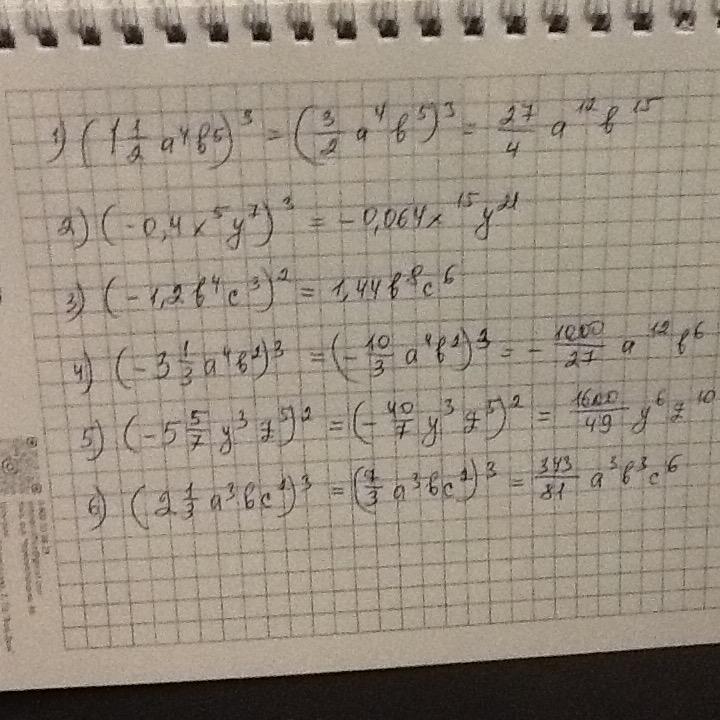 1) (1 1/2 a⁴в⁵)³ = (3/2 a⁴в⁵)³ = 27/4 a¹²в¹⁵
2) (-0,4x⁵y⁷)³ = -0,064x¹⁵y²¹
3) (-1,2в⁴c³)² = 1,44в⁸c⁶
4) (-3 1/3 a⁴в²)³ = (-10/3 a⁴в²)³ = -1000/27 a¹²в⁶
5) (-5 5/7 y³z⁵)² = (-40/7 y³z⁵)² = 1600/49 y⁶z¹⁰
6) (2 1/3 a³вc²)³ = (7/3 a³вc²)³ = 343/81 a³в³c⁶